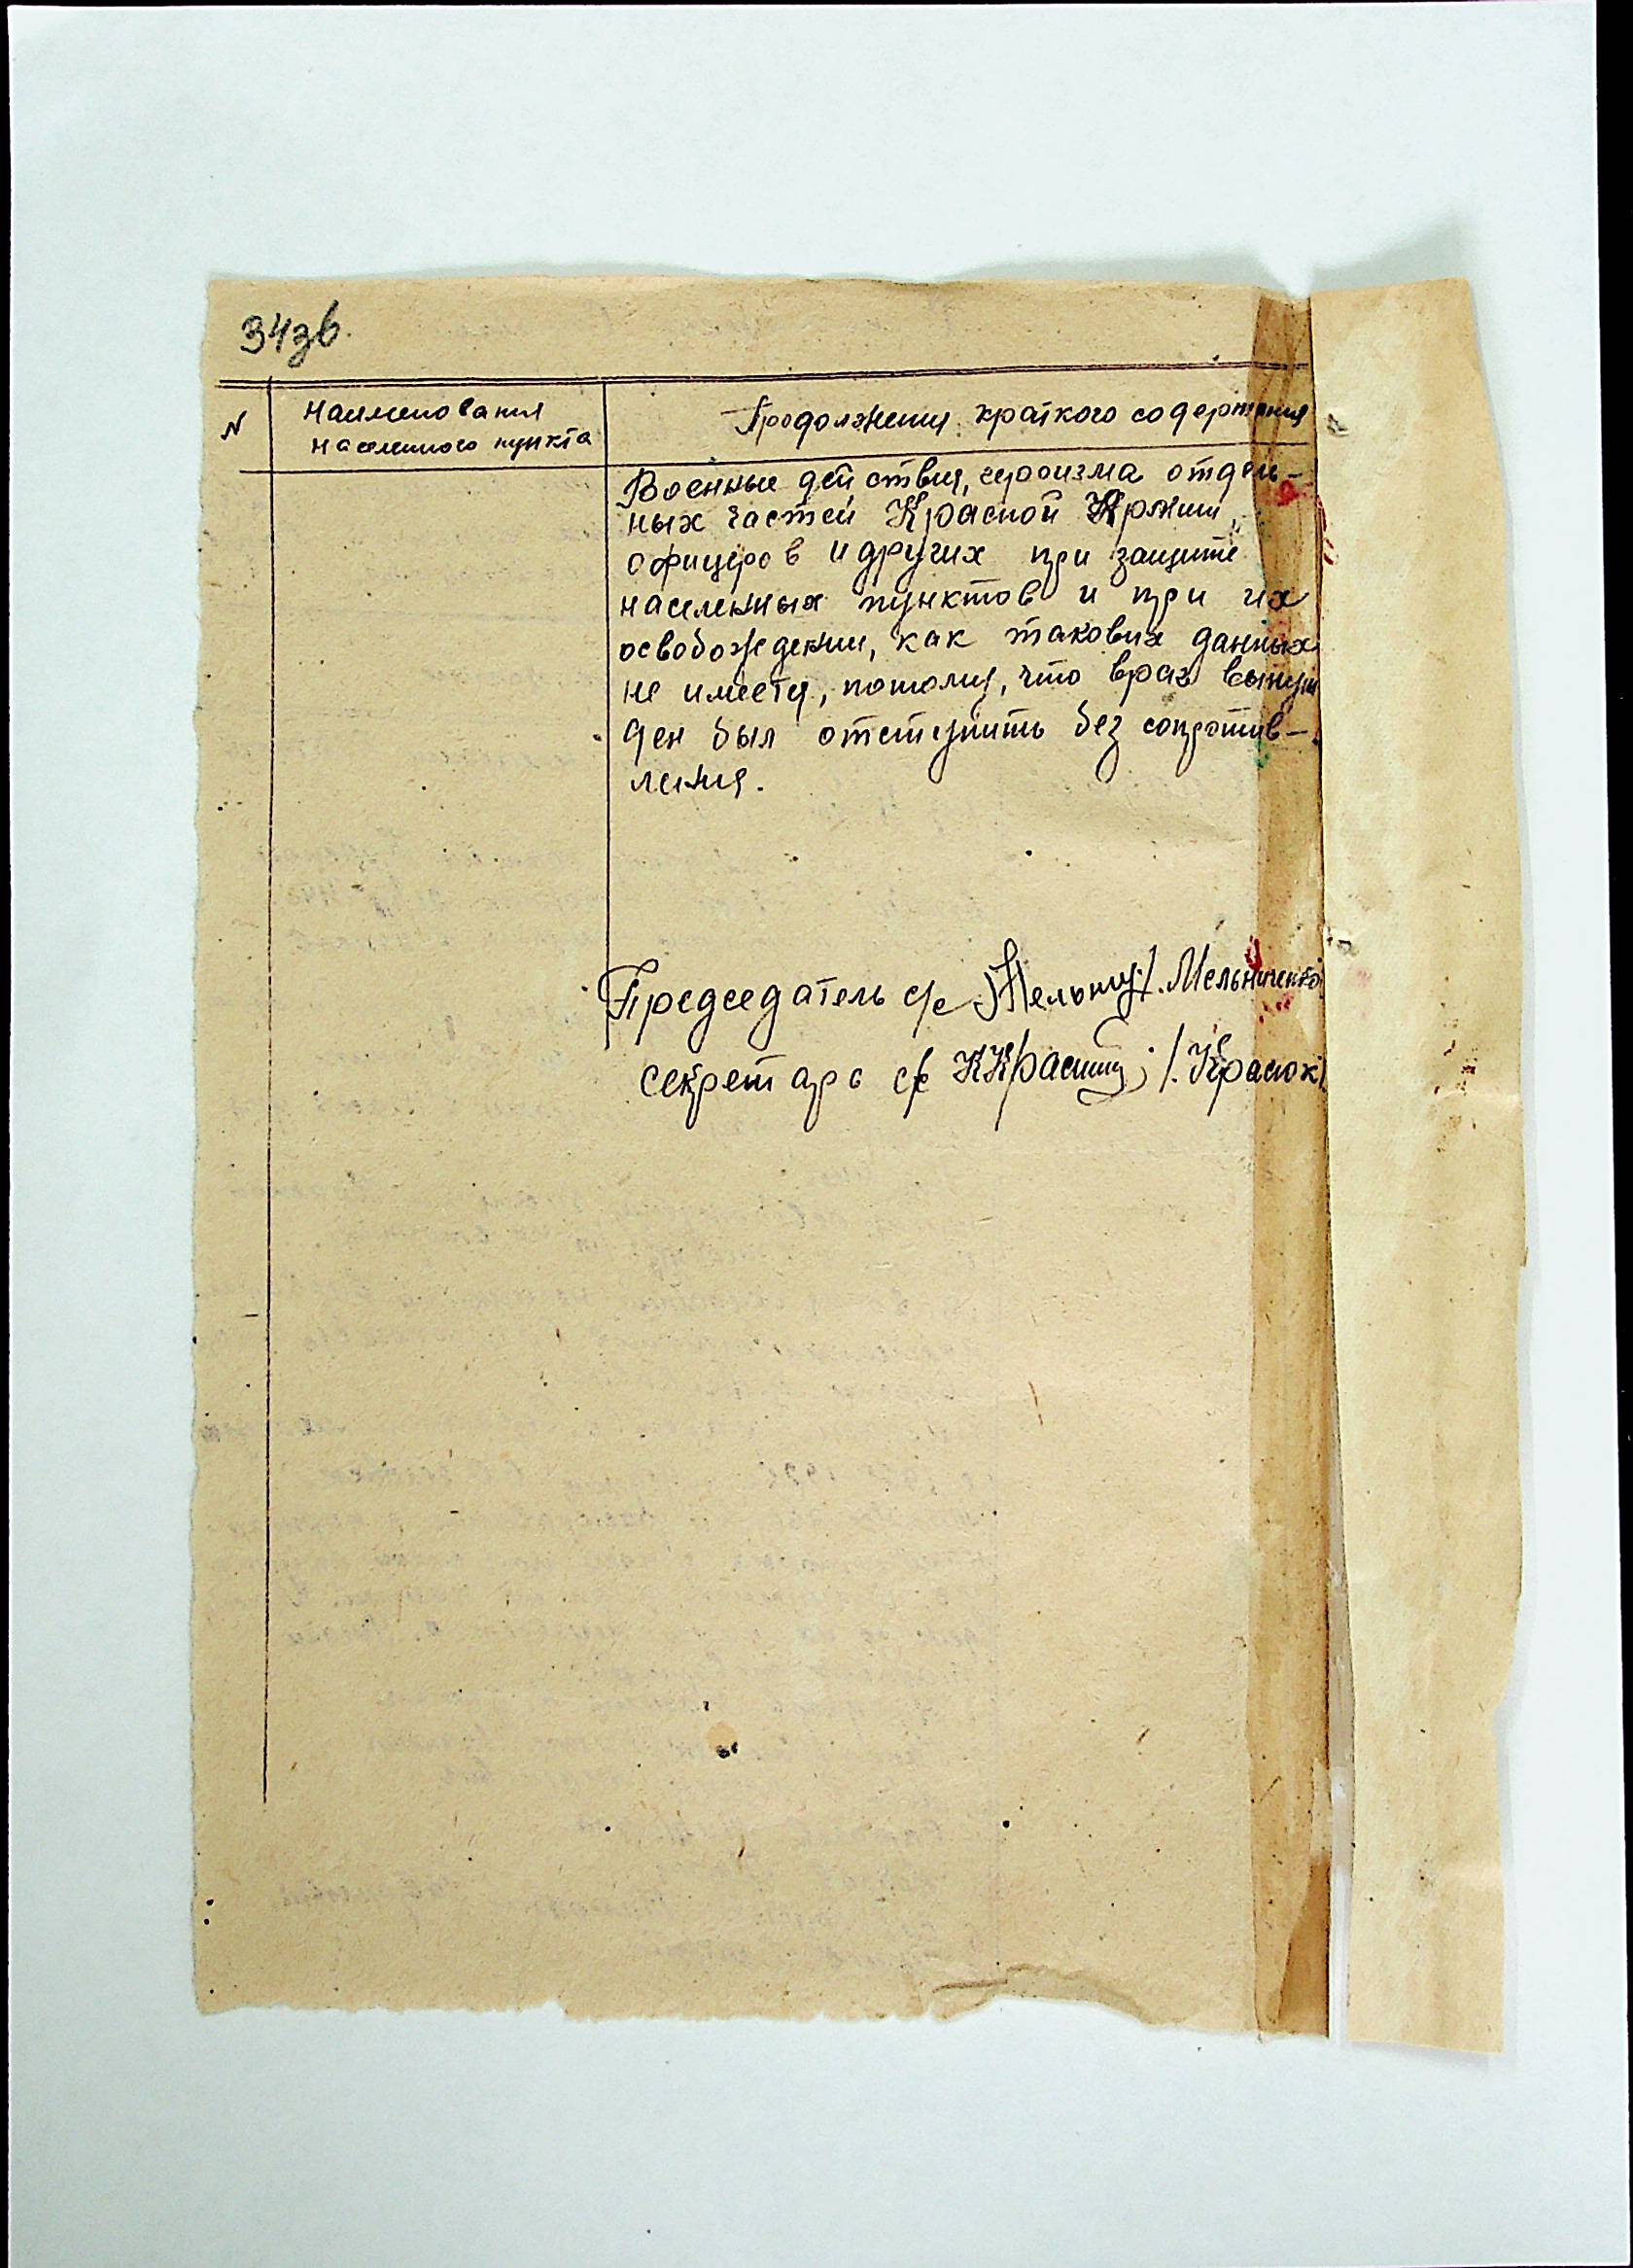 34зв.
N
Наименования
населенного пункта
Продолжения краткого содержания
Военные действия, героизма отдель-
ных частей Красной Армии,
офицеров и других при защите
населенных пунктов и при их
освобождении, как таковых данных
не имеется, потому, что враг вынуж
ден был отступить без сопротив-
ления.
Председатель с/с /. Мельниченко
секретарь с/с /. Красюк/